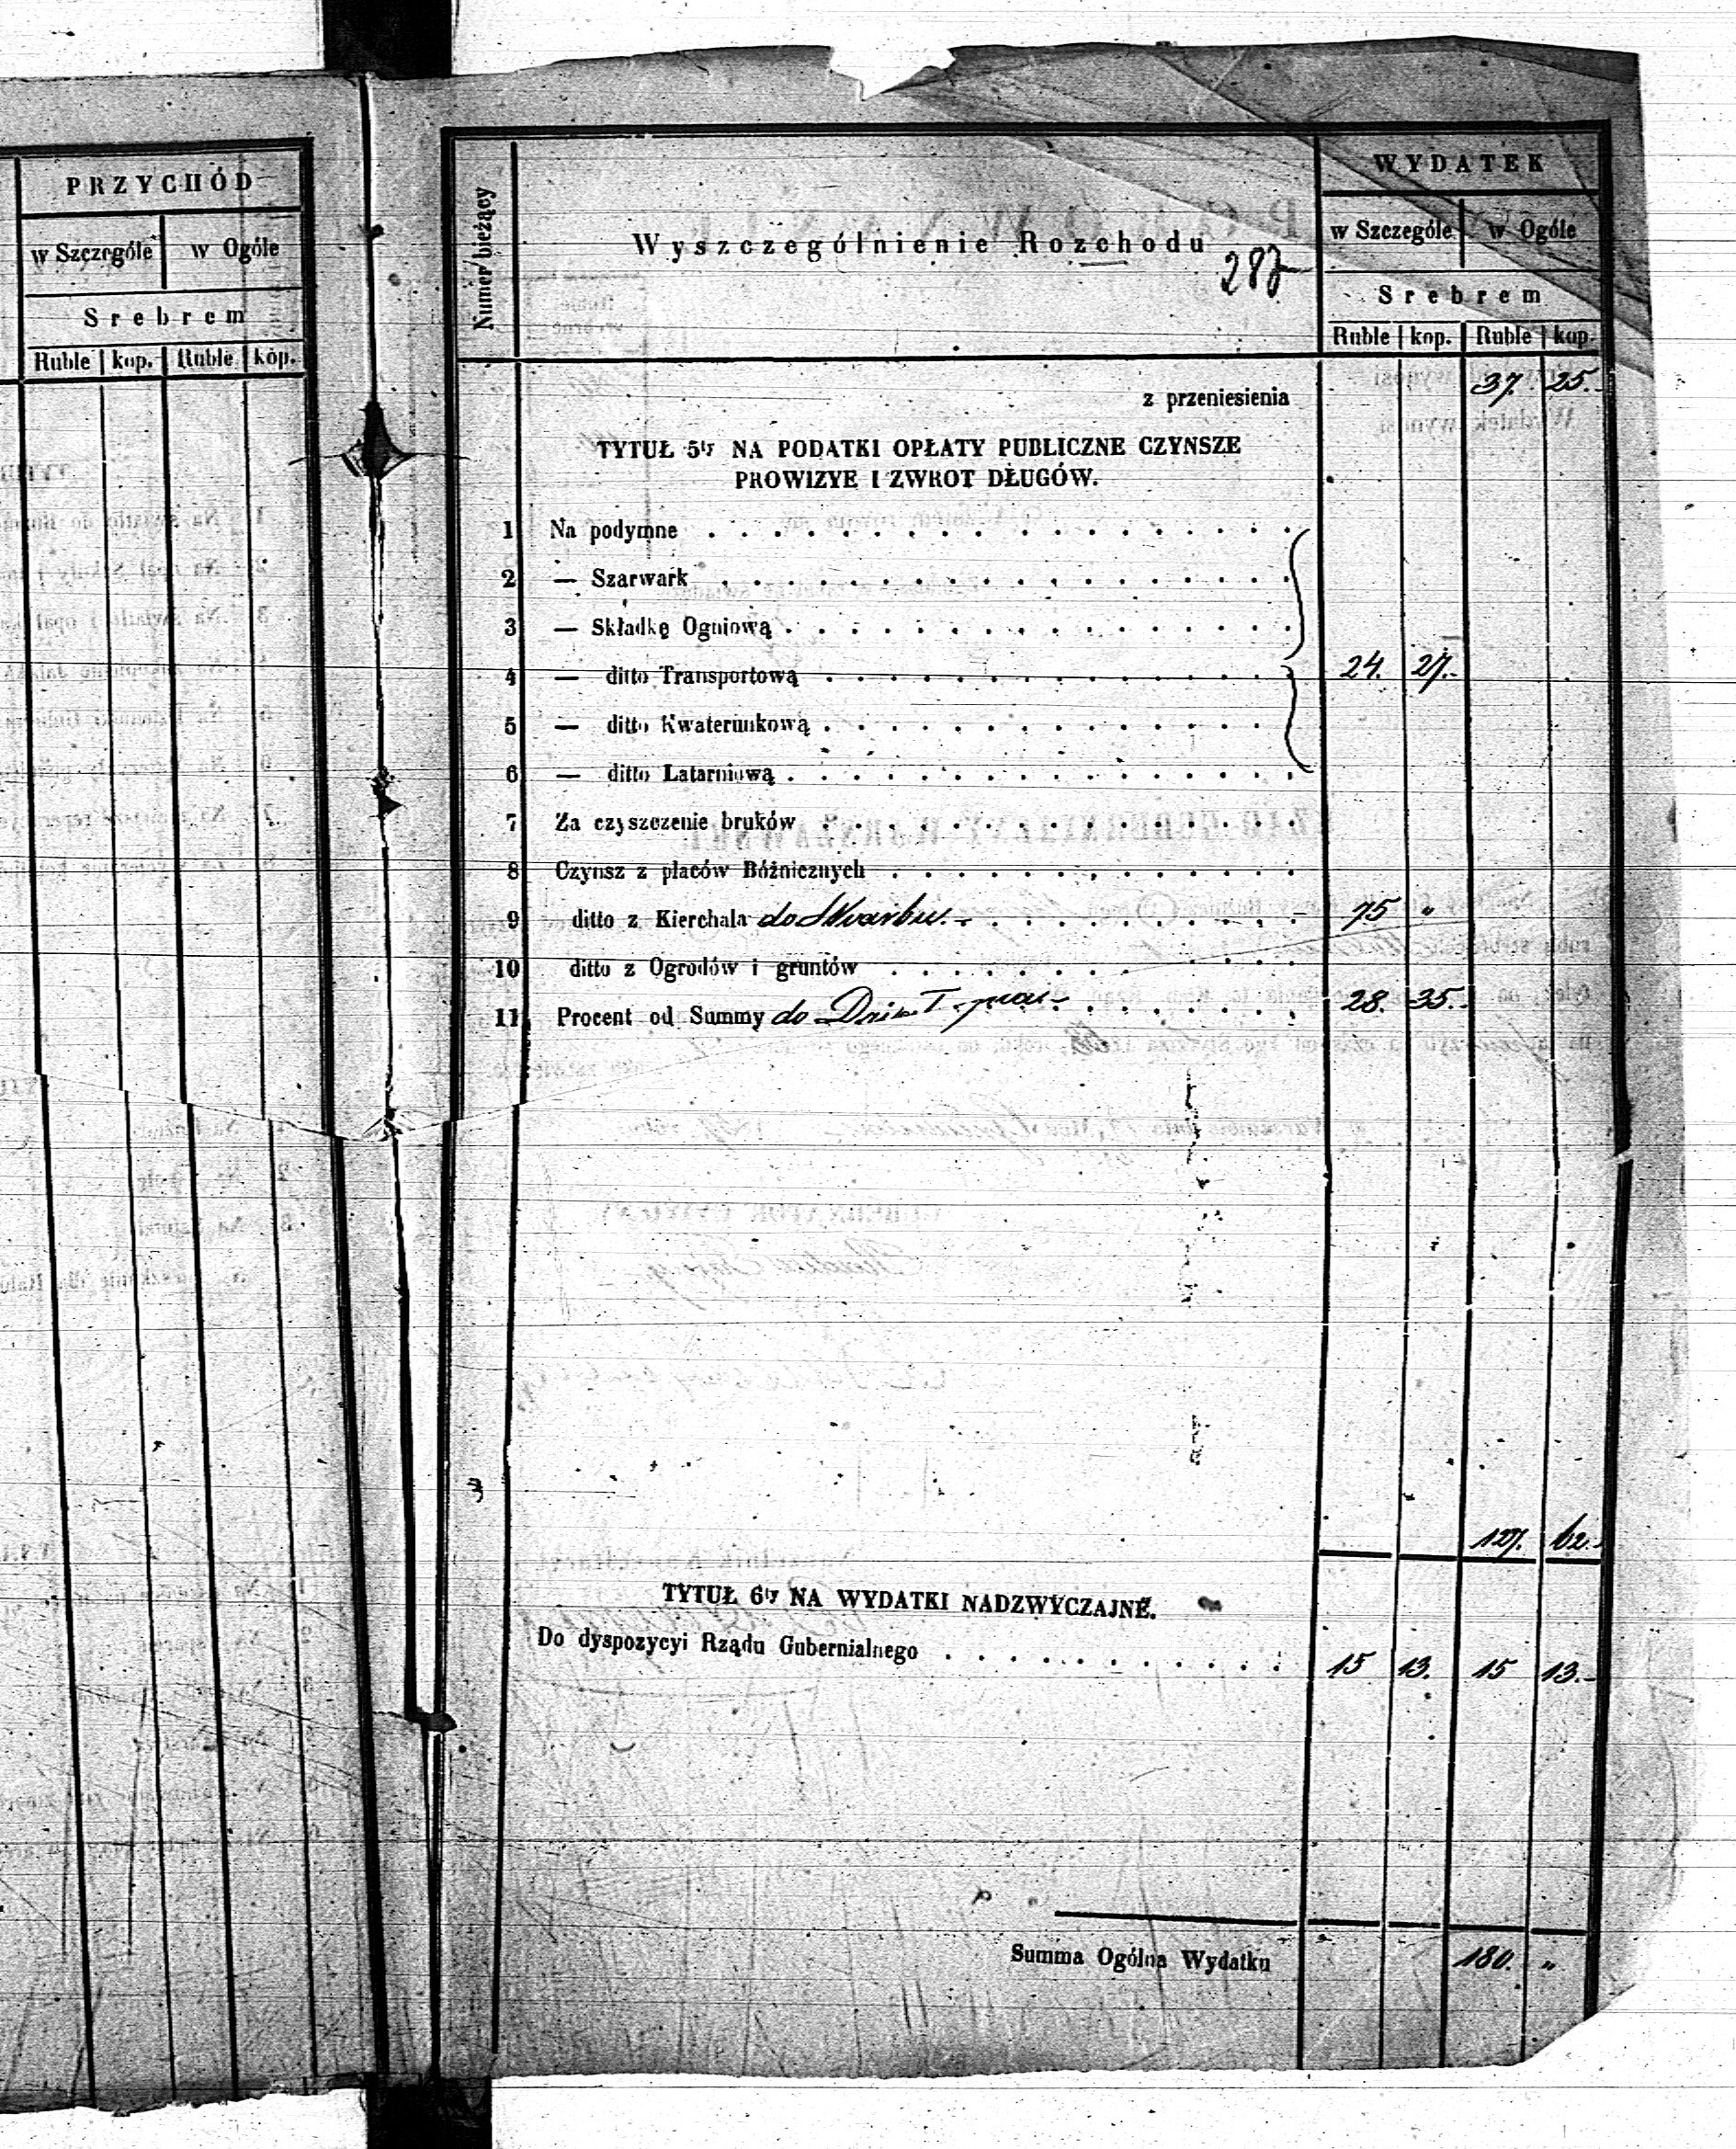 PRZYCHÓD
w Szczególe w Ogóle
Srebrem
Ruble kop. Ruble kop.
Numer bieżący
Wyszczególnienie Rozchodu
287
WYDATEK
w Szczególe w Ogóle
Srebrem
Ruble kop. Ruble kop.
z przeniesienia 37. 25.
TYTUŁ 5ty NA PODATKI OPŁATY PUBLICZNE CZYNSZE
PROWIZYE I ZWROT DŁUGÓW.
1 Na podymne
2 — Szarwark
3 — Składkę Ogniową
4 — ditto Transportową 24. 27.
5 — ditto Kwaterunkową
6 — ditto Latarniową
7 Za czyszczenie bruków
8 Czynsz z placów Bóżnicznych
9 ditto z Kierchala do Skarbu. 75 "
10 ditto z Ogrodów i gruntów
11 Procent od Summy do 28. 35.
127. 62.
TYTUŁ 6ty NA WYDATKI NADZWYCZAJNE.
Do dyspozycyi Rządu Gubernialnego 15 13. 15 13.
Summa Ogólna Wydatku 180. "